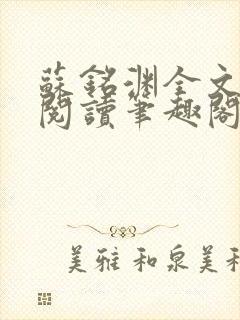 蘇銘渊全文
閱讀筆趣閣
美雅和泉美和